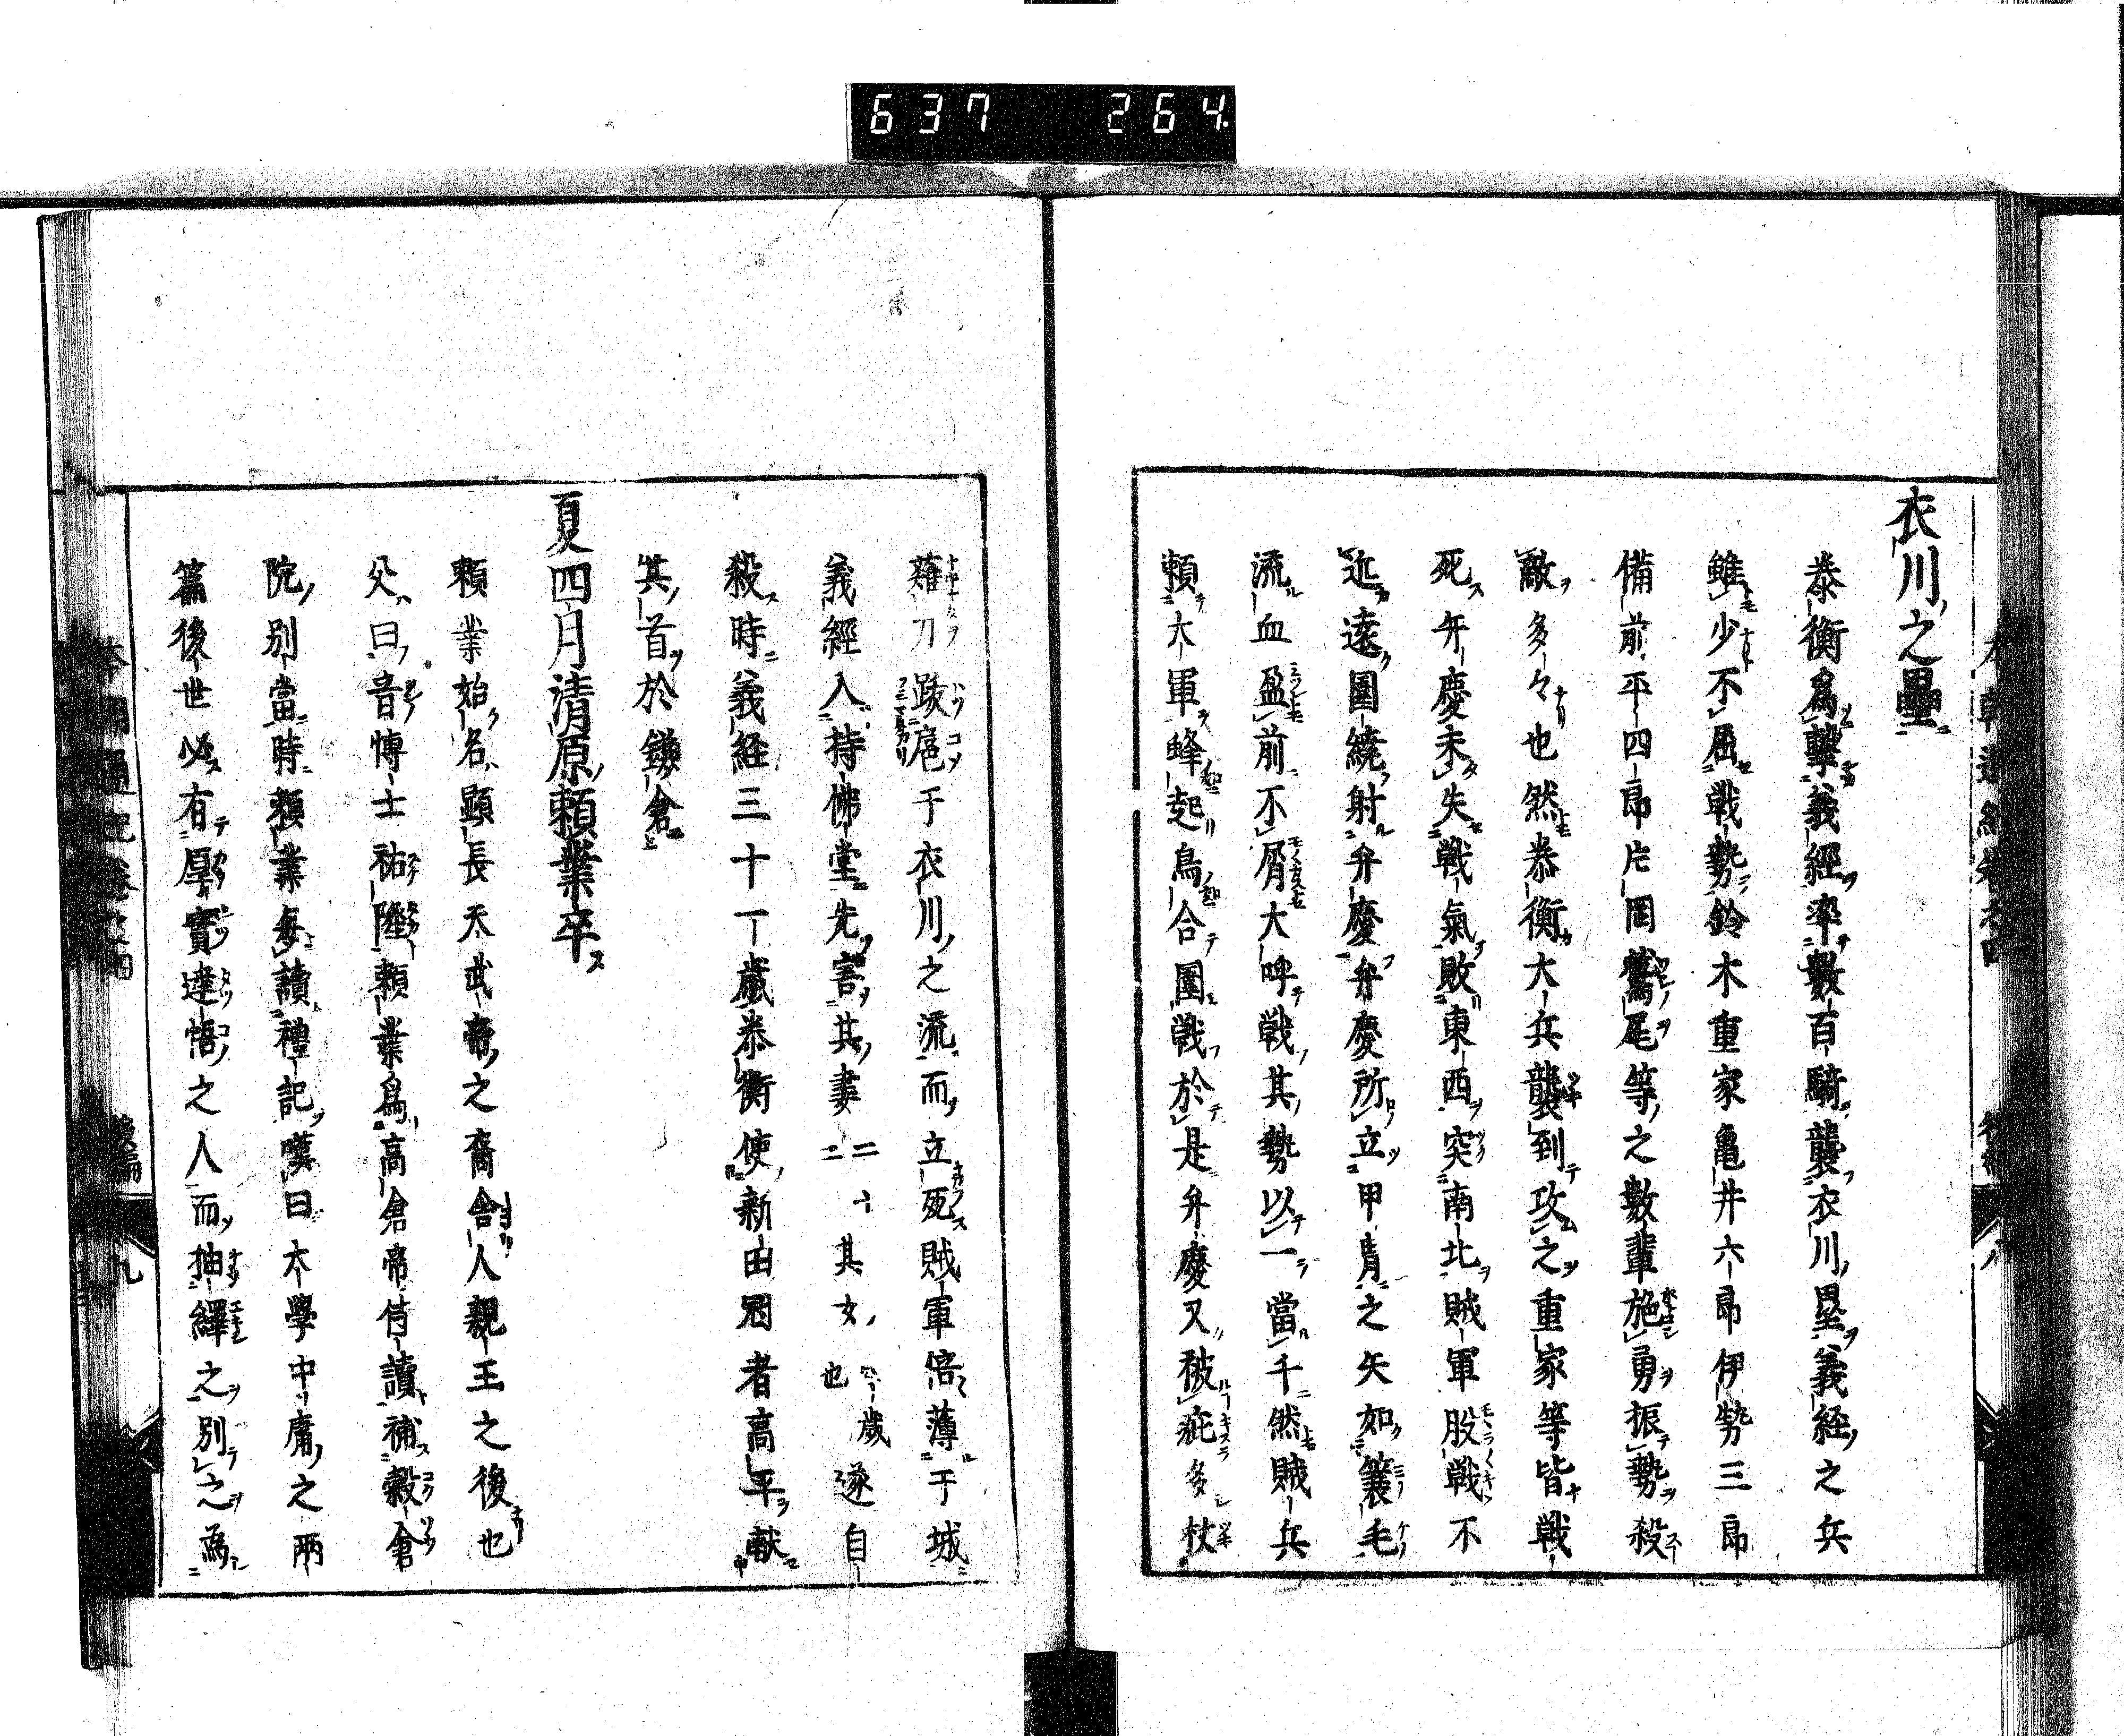 637 264
衣川之壘
泰衡爲擊義經率數百騎襲衣川塁義経之兵
雖少不屈戦勢鈴木重家亀井六郎伊勢三郎
備前平四郎片岡鷲尾等之數輩施勇振勢殺
敵多々也然泰衡大兵襲到攻之重家等皆戦
死弁慶未失戰氣敗東西突南北賊軍股戦不
近遠圍繞射弁慶弁慶所立甲冑之矢如簑毛
流血盈前不屑大呼戦其勢以一當千然賊兵
頼大軍蜂起烏合圍戦於是弁慶又被疵多杖
薙刀跋扈于衣川之流而立死賊軍倍薄于城
義經入持佛堂先害其妻二其女也歳遂自
殺時義経三十一歳泰衡使新田冠者高平献
其首於鎌倉
夏四月清原頼業卒
頼業始名顕長天武帝之裔舎人親王之後也
父曰音博士祐隆頼業爲高倉帝侍讀補穀倉
院別當時頼業毎讀禮記嘆曰大學中庸之兩
篇後世必有厚實達悟之人而抽繹之別之為
九